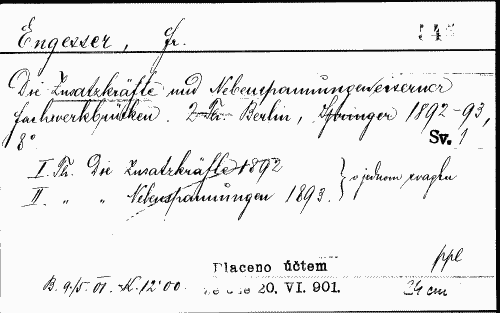 Engesser, Fr.
Die Zusatzkräfte und Nebenspannungen eiserner
Fachwerkbrücken. 2 Th. Berlin, Springer 1892-93,
8° Sv. 1
I. Th. Die Zusatzkräfte 1892
II. „ „ Nebenspannungen 1893. } v jednom svazku
Placeno účtem ppl
B. 9/5. 01. K. 12·00. 20. VI. 901. 24 cm